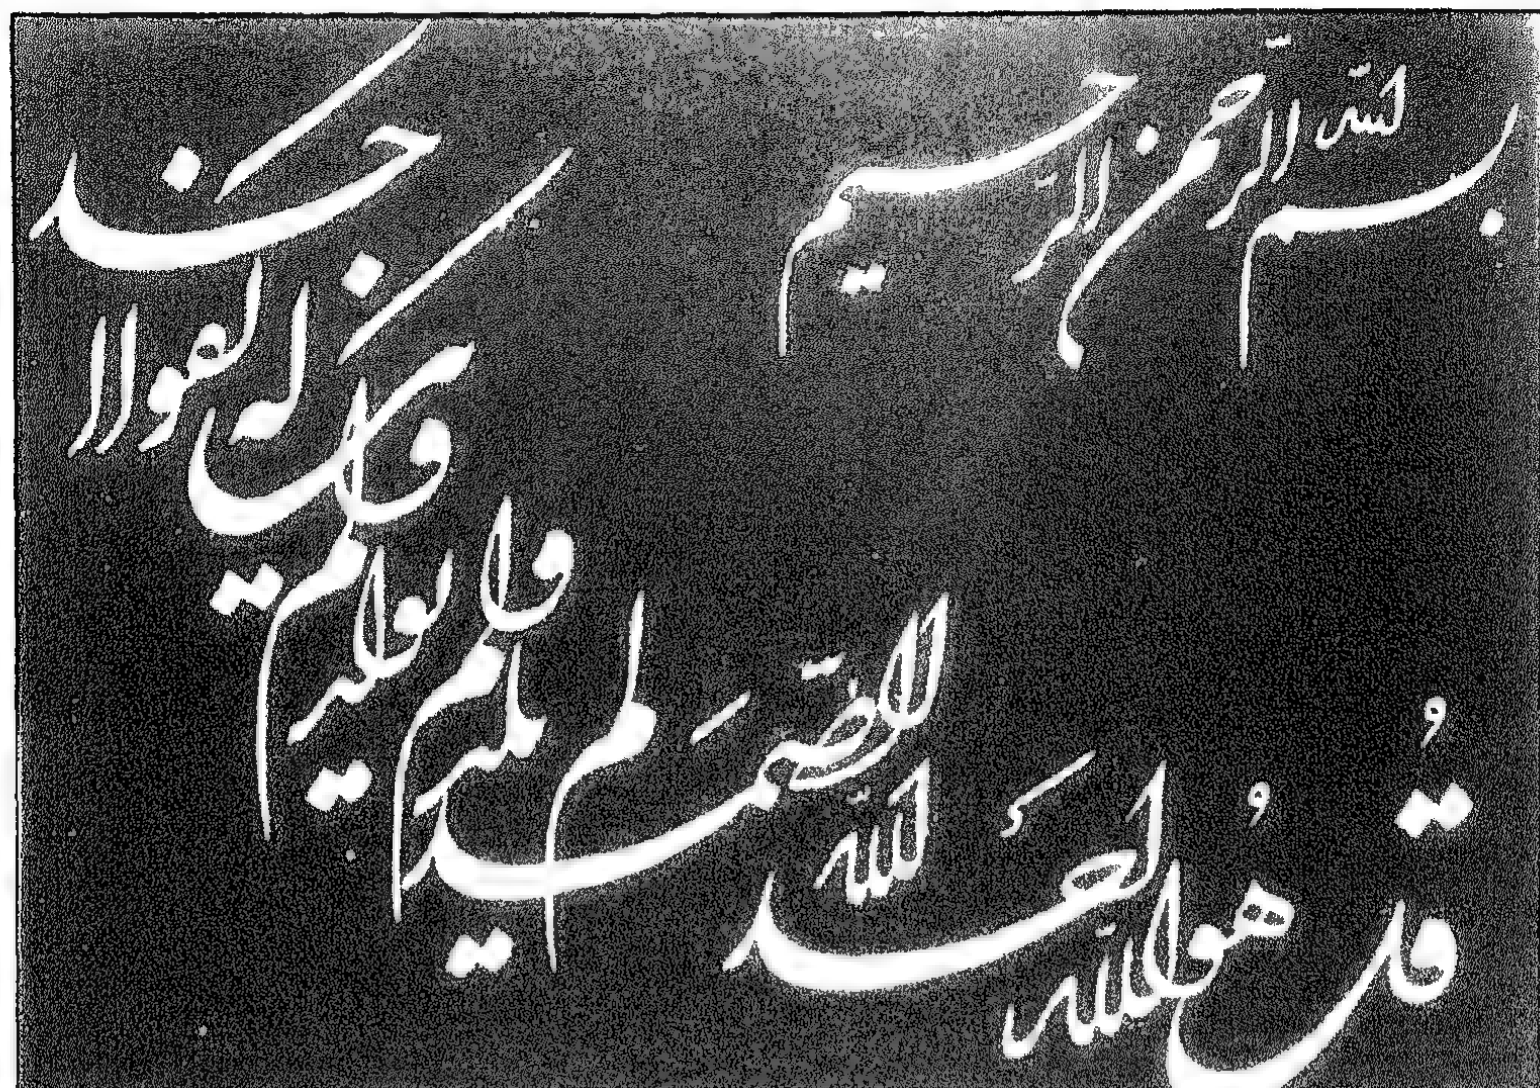 بسم الله الرّحمن الرّحيم
قُل هُوَ الله احد
الله الصَّمد
لم يلد
ولم يولد
ولم يكن له كفوا احد